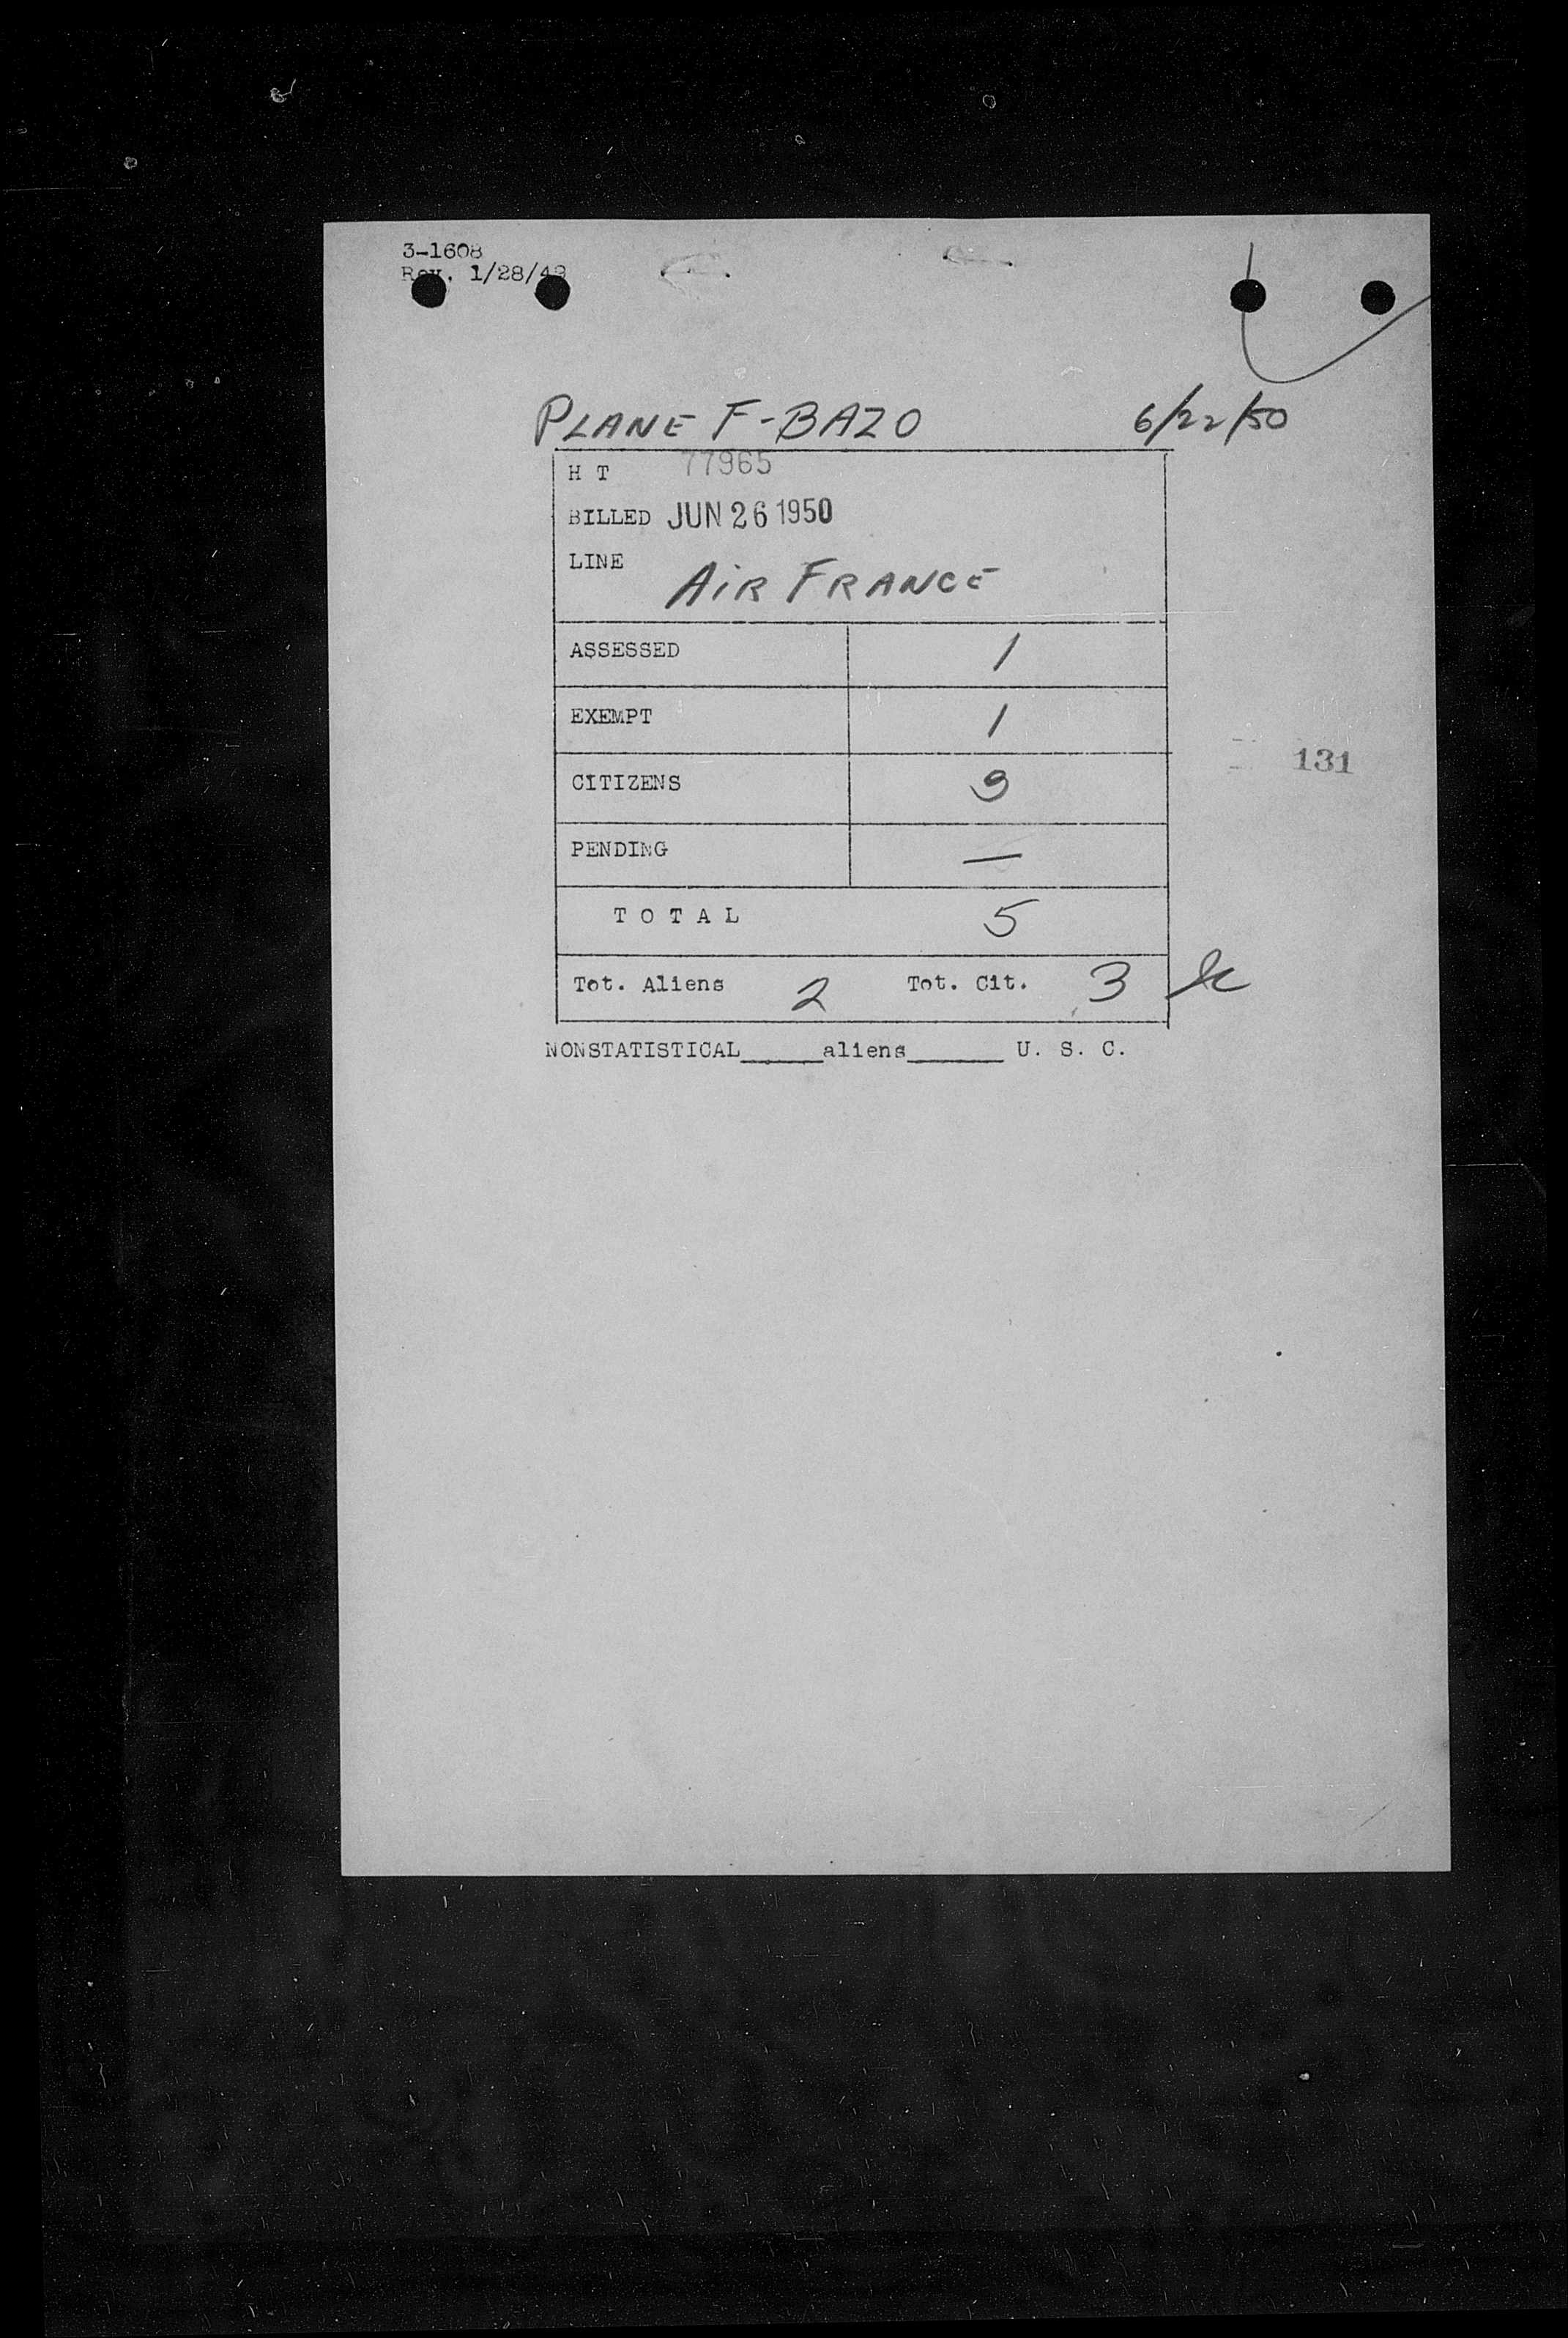 3-1608
Rev. 1/28/49
PLANE F-BAZO 6/22/50
H T 77965
BILLED JUN 26 1950
LINE AIR FRANCE
ASSESSED 1
EXEMPT 1
131
CITIZENS 3
PENDING —
TOTAL 5
Tot. Aliens 2 Tot. Cit. 3
NONSTATISTICAL______aliens______ U. S. C.